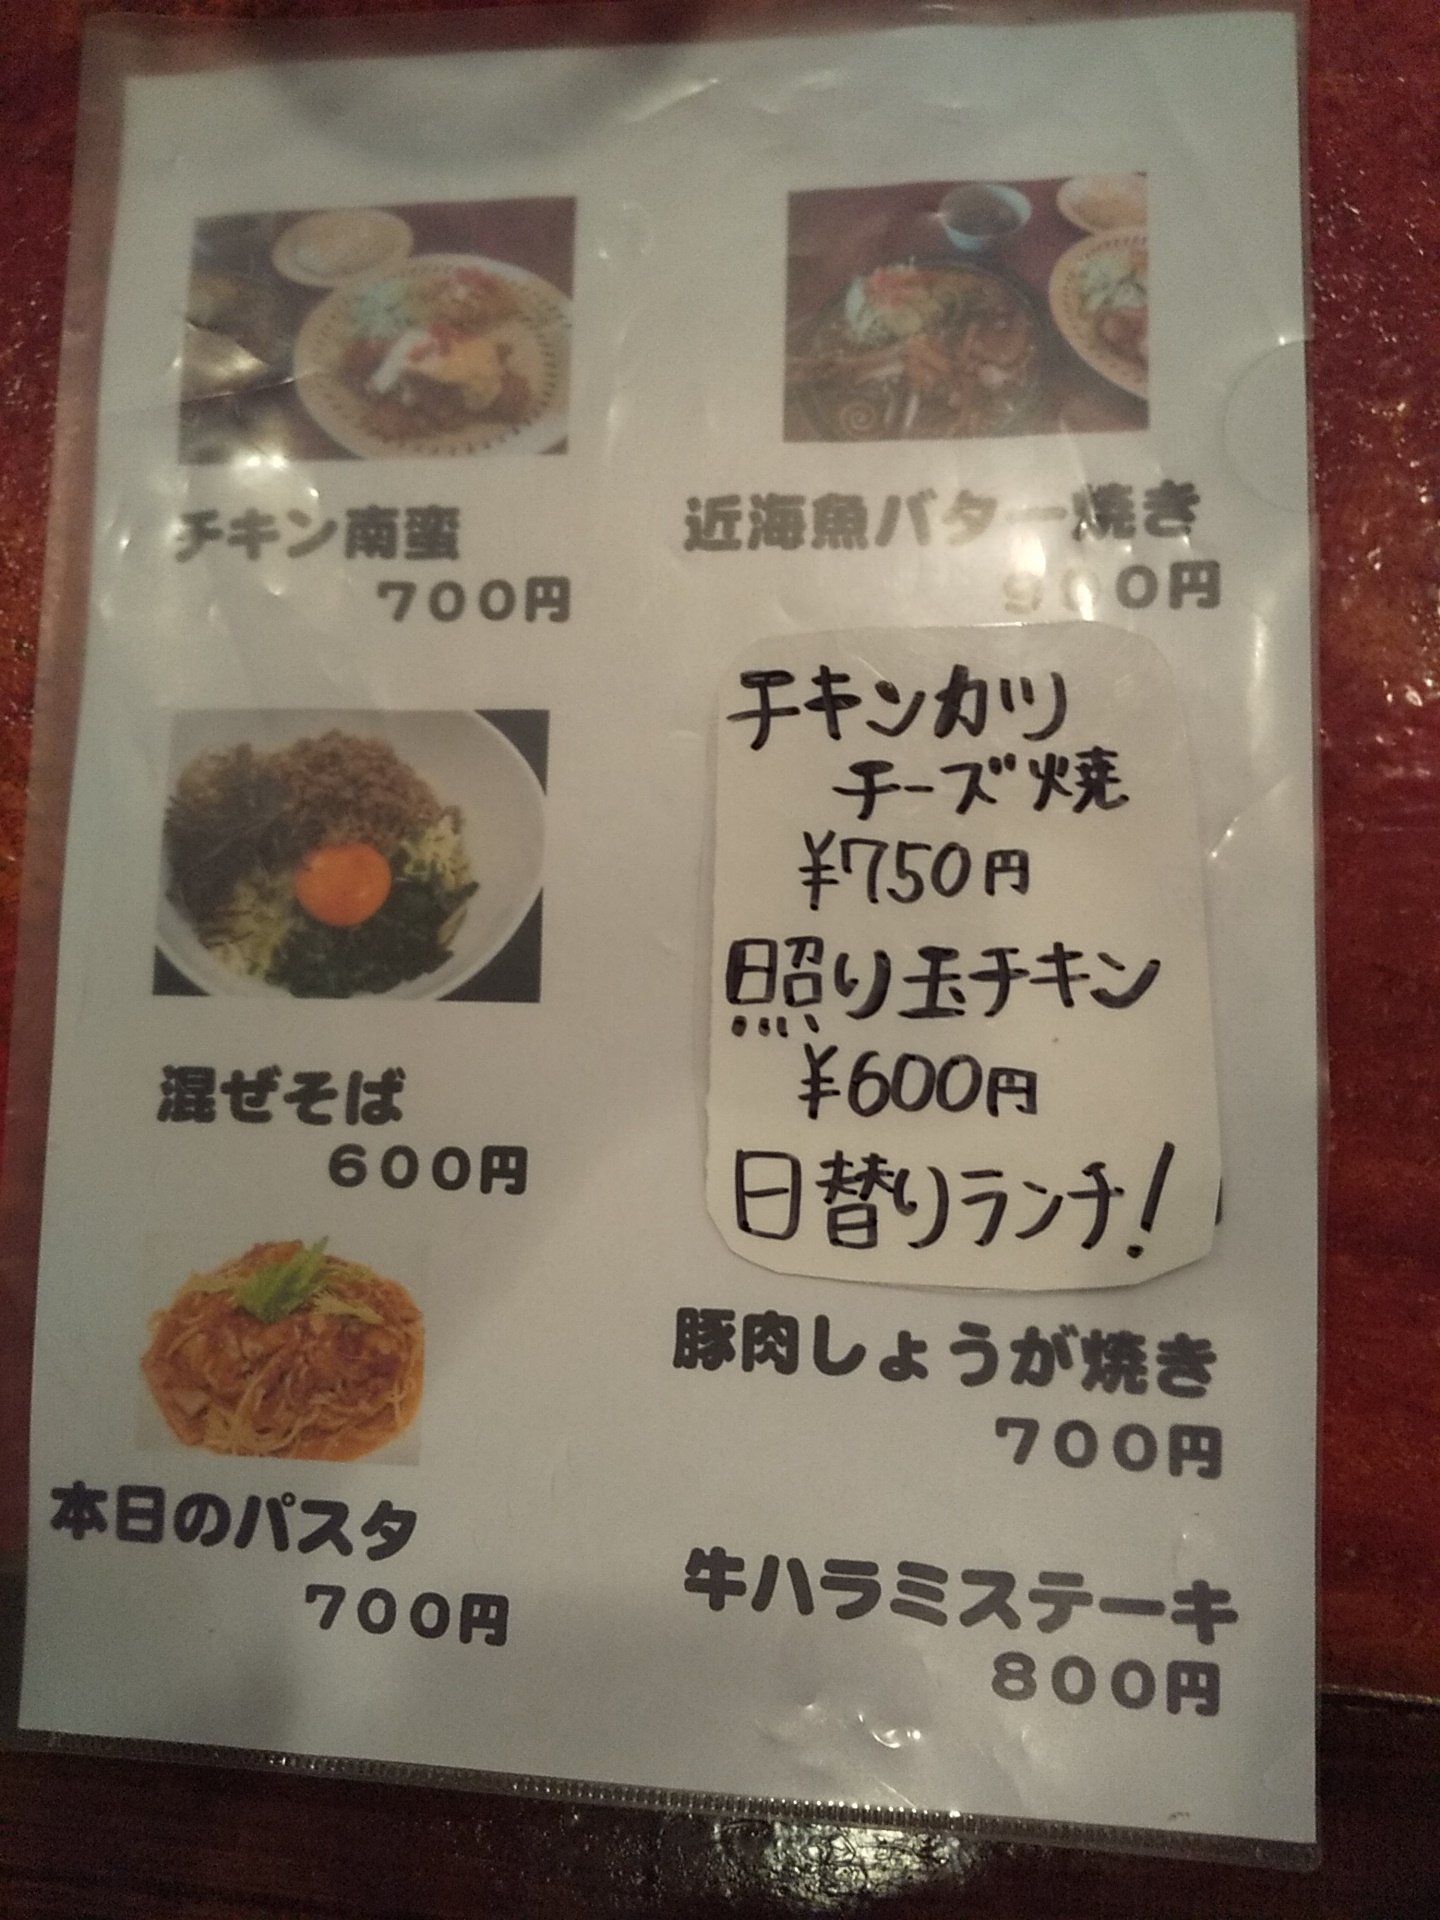 チキン南蛮
700円
近海魚バター焼き
900円
チキンカツ
チーズ焼
¥750円
照り玉チキン
¥600円
日替りランチ!
混ぜそば
600円
豚肉しょうが焼き
700円
本日のパスタ
700円
牛ハラミステーキ
800円